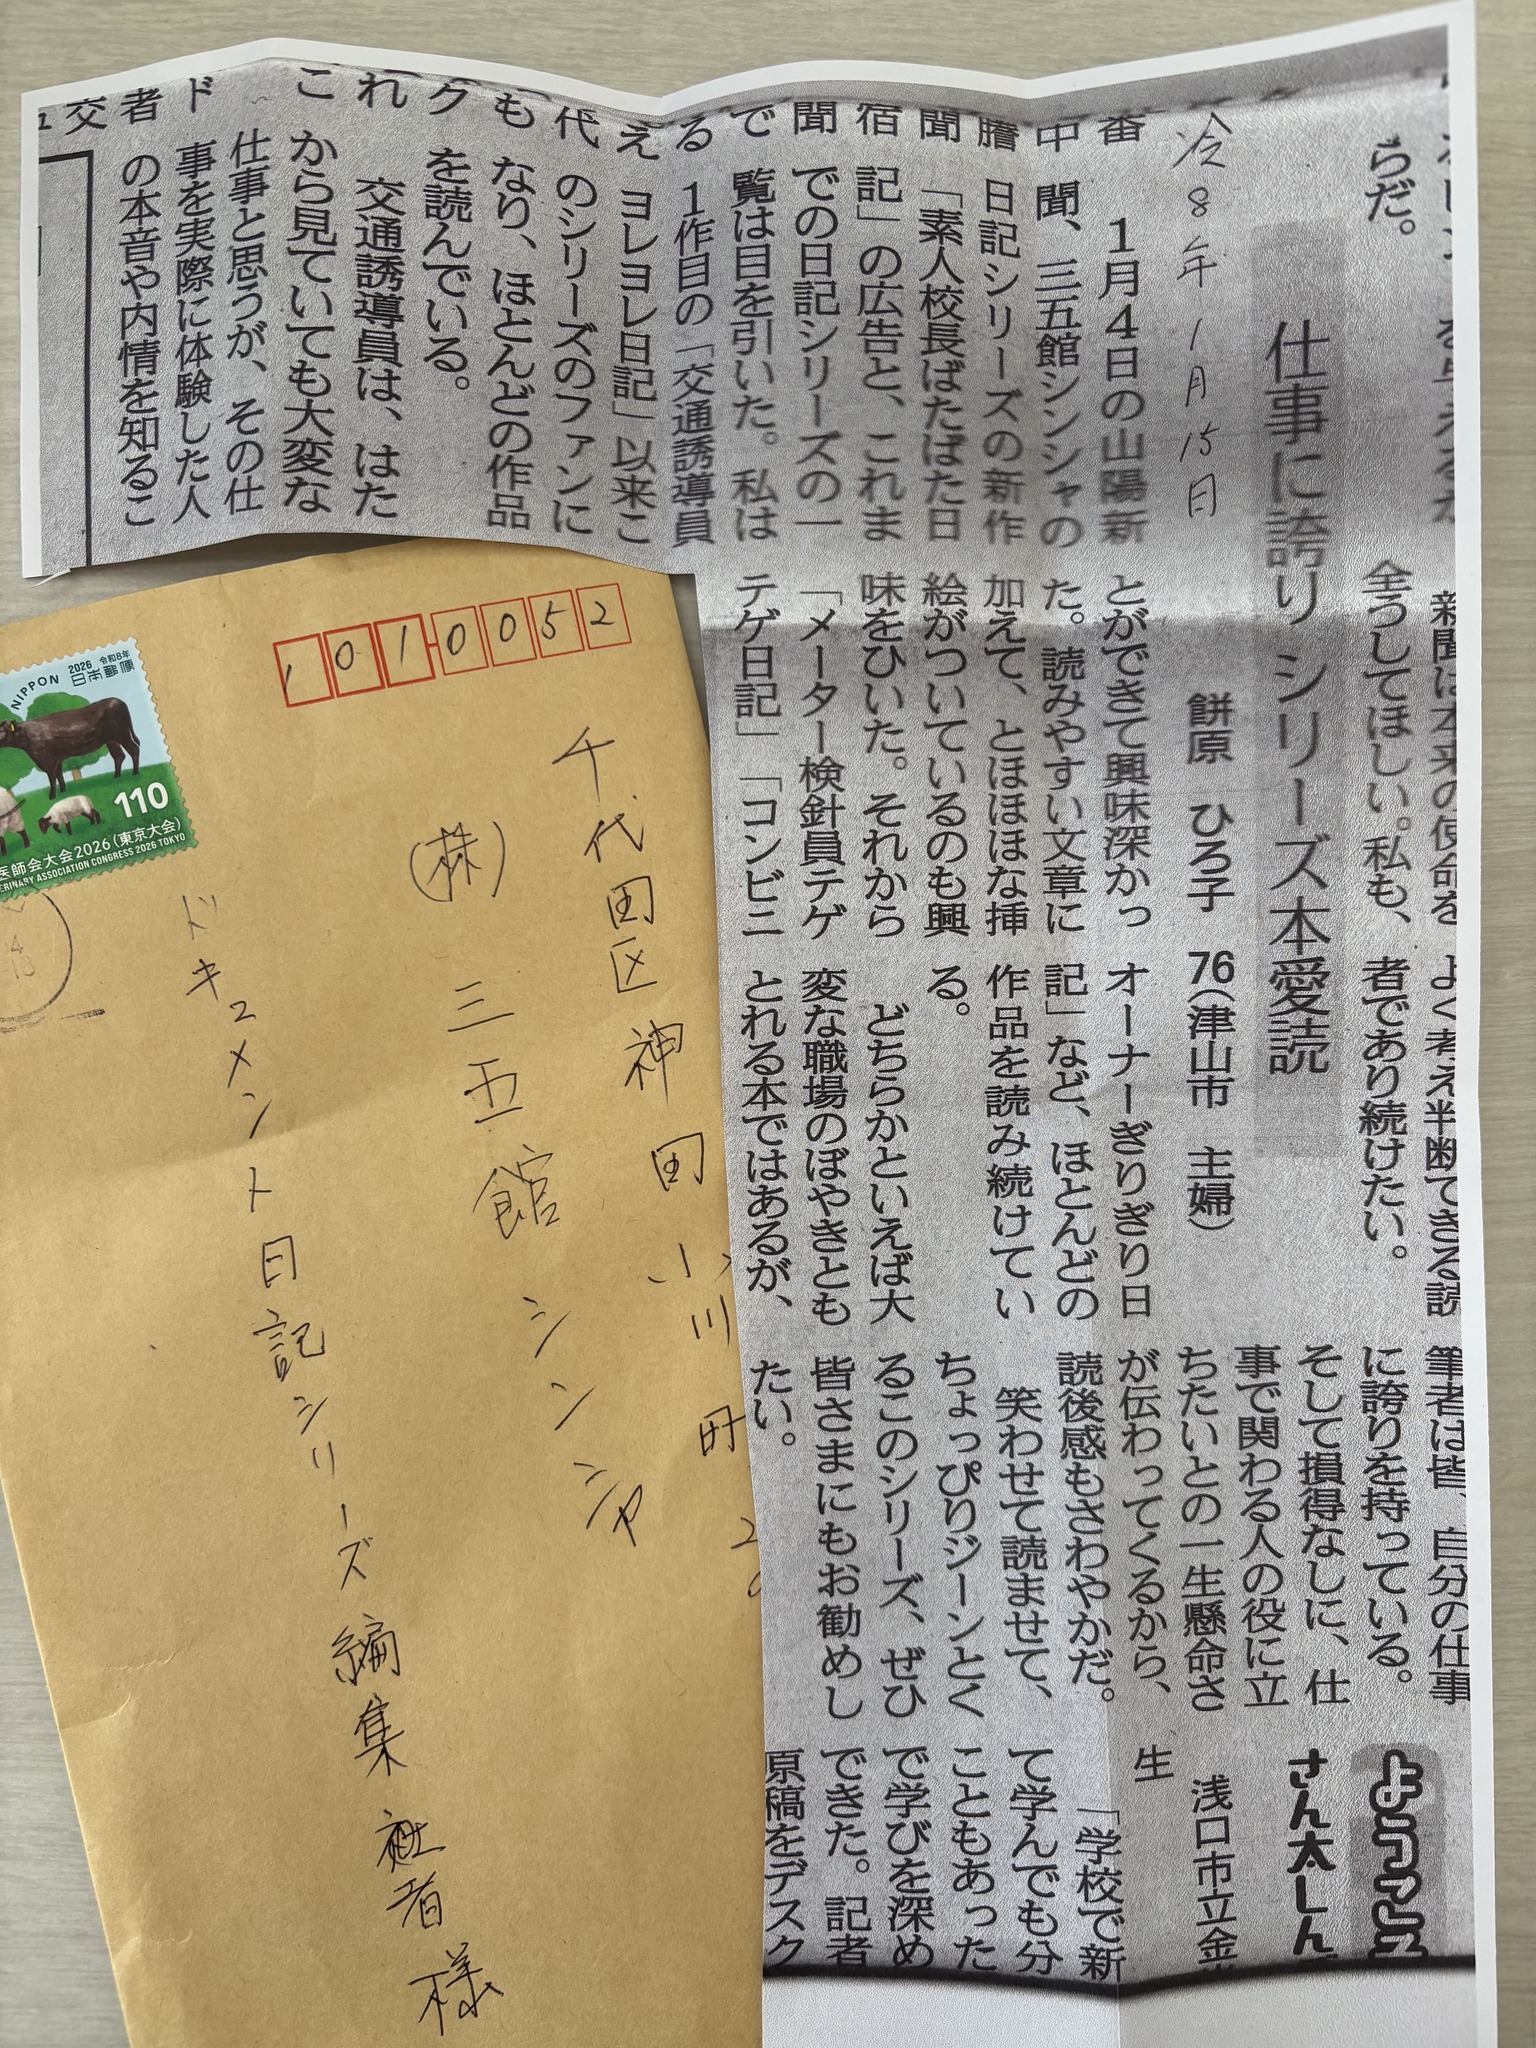 らだ。
新聞は本来の使命を
全うしてほしい。私も、
よく考え判断できる読
者であり続けたい。
仕事に誇り シリーズ本愛読
餅原 ひろ子 76(津山市 主婦)
令8年1月15日
１月４日の山陽新
聞、三五館シンシャの
日記シリーズの新作
「素人校長ばたばた日
記」の広告と、これま
での日記シリーズの一
覧は目を引いた。私は
１作目の「交通誘導員
ヨレヨレ日記」以来こ
のシリーズのファンに
なり、ほとんどの作品
を読んでいる。
交通誘導員は、はた
から見ていても大変な
仕事と思うが、その仕
事を実際に体験した人
の本音や内情を知るこ
とができて興味深かっ
た。読みやすい文章に
加えて、とほほほな挿
絵がついているのも興
味をひいた。それから
「メーター検針員テゲ
テゲ日記」「コンビニ
オーナーぎりぎり日
記」など、ほとんどの
作品を読み続けてい
る。
どちらかといえば大
変な職場のぼやきとも
とれる本ではあるが、
筆者は皆、自分の仕事
に誇りを持っている。
そして損得なしに、仕
事で関わる人の役に立
ちたいとの一生懸命さ
が伝わってくるから、
読後感もさわやかだ。
笑わせて読ませて、
ちょっぴりジーンとく
るこのシリーズ、ぜひ
皆さまにもお勧めし
たい。
番
中
聞
宿
聞
で
る
え
代
も
ク
れ
こ
ド
者
交
ようこそ
さん太しん
浅口市立金
生
「学校で新
て学んでも分
こともあった
で学びを深め
できた。記者
原稿をデスク
1010052
千代田区神田小川町2
(株)三五館シンシャ
ドキュメント日記シリーズ編集担者様
NIPPON
2026 令和8年
日本郵便
110
医師会大会2026(東京大会)
ERINARY ASSOCIATION CONGRESS 2026 TOKYO